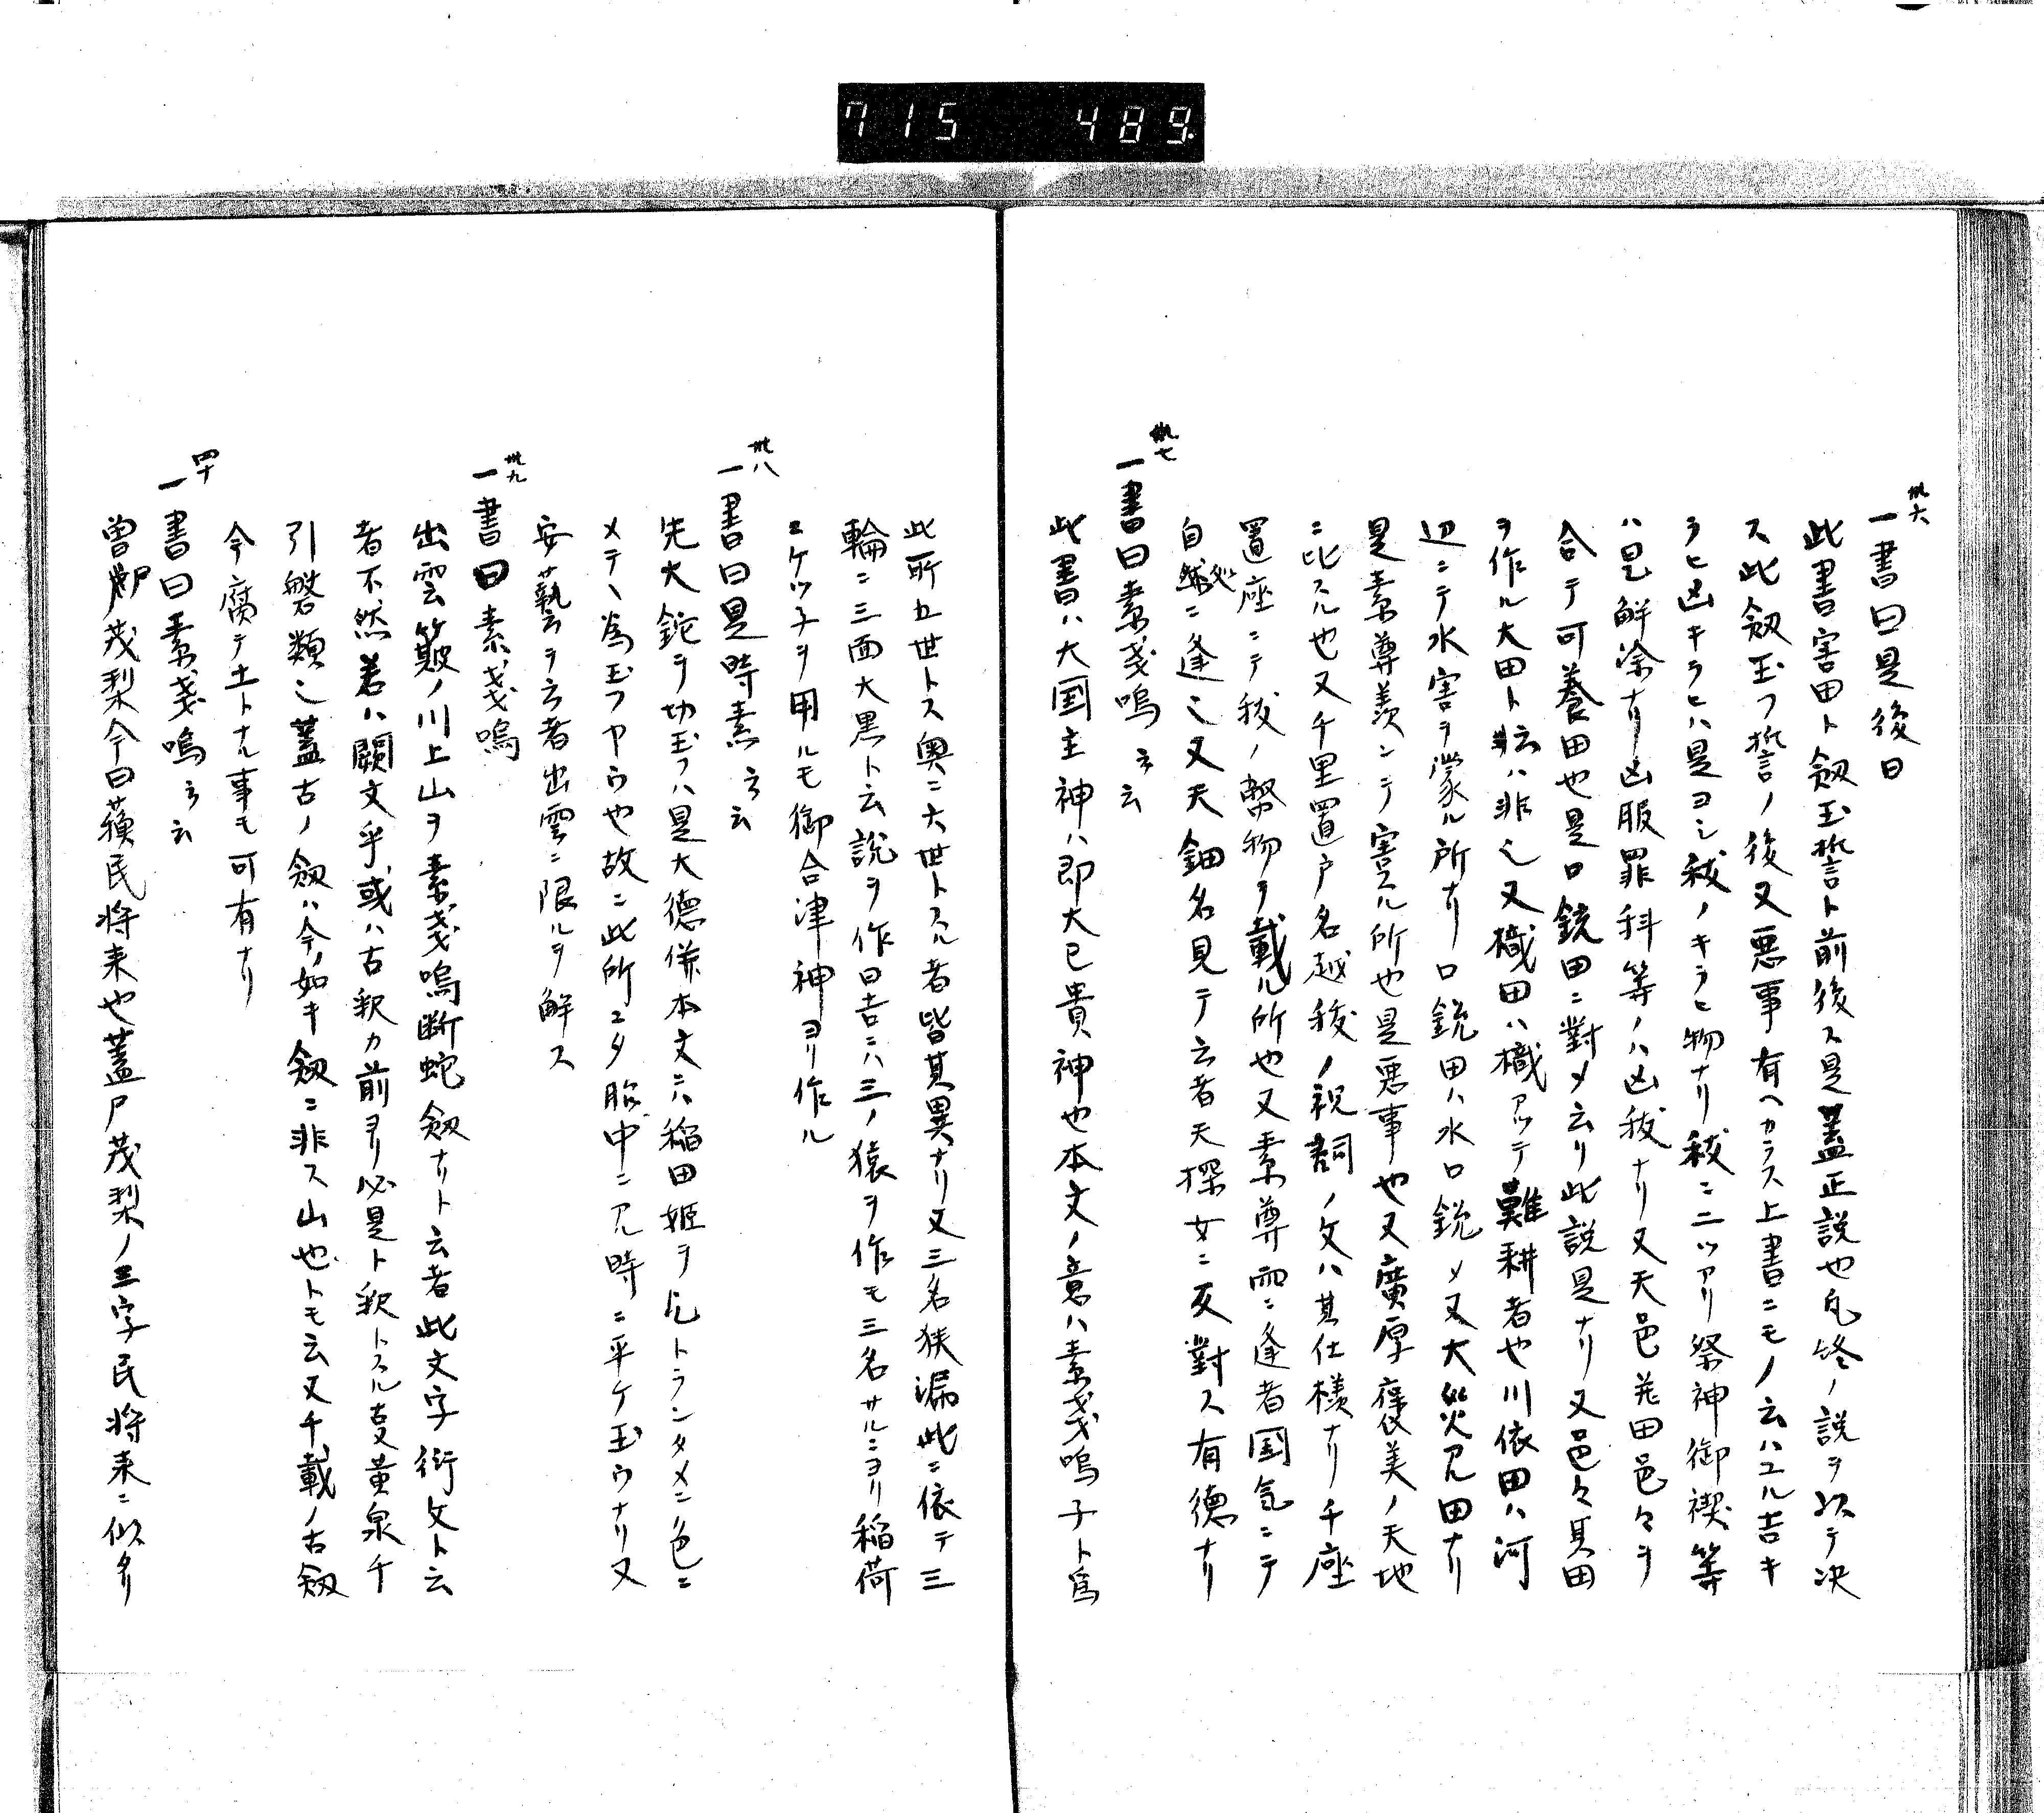 715 489
卅六
一書曰是後日
此書害田ト劔玉誓ト前後ス是蓋正説也 終ノ説ヲ以テ决
ス此劔玉フ誓ノ後又悪事有ヘカラス上書ニモノ云ハユル吉キ
ラヒ凶キラヒハ是ヨシ秡ノキラヒ物ナリ秡ニ二ツアリ祭神御禊等
ハ是解除ナリ凶服罪科等ノハ凶秡ナリ又天邑 田邑々ヲ
合テ可養田也是曰鋭田ニ對メ云リ此説是ナリ又邑々具田
ヲ作ル大田ト云ハ非也又樴田ハ樴アツテ難耕者也川依田ハ河
辺ニテ水害ヲ蒙ル所ナリ口鋭田ハ水口鋭メ又大災アル田ナリ
是素尊羨ンテ害スル所也是悪事也又廣厚 美ノ天地
ニ比スル也又千里置戸名越秡ノ祝詞ノ文ハ其仕様ナリ千座
置座ニテ秡ノ幣物ヲ載ル所也又素尊雨ニ逢者国気ニテ
自然ニ逢也又天鈿名見テ云者天探女ニ反對ス有徳ナリ
卅七
一書曰素戔嗚云云
此書ハ大国主神ハ即大己貴神也本文ノ意ハ素戔嗚子ト為
此所五世トス奥ニ六世トスル者皆其異ナリ又三名狭漏此ニ依テ三
輪ニ三面大黒ト云説ヲ作曰吉ニハ三ノ猿ヲ作モ三名サルニヨリ稲荷
ニケツ子ヲ用ルモ御合津神ヨリ作ル
卅八
一書曰是時素云云
先大蛇ヲ切玉フハ是大徳併本文ニハ稲田姫ヲ トランタメニノ色ニ
メテヽ為玉フヤウ也故ニ此所ニタ胎中ニアル時ニ平ケ玉ウナリ又
安藝ヲ云者出雲ニ限ルヲ解ス
卅九
一書曰素戔嗚
出雲簸ノ川上山ヲ素戔嗚断蛇劔ナリト云者此文字衍文ト云
者不然若ハ闕文乎或ハ古釈カ前ヨリ必是ト釈トスル支黄泉千
引磐類也蓋古ノ劔ハ今ノ如キ劔ニ非ス山也トモ云又千載ノ古劔
今腐テ土トナル事モ可有ナリ
四十
一書曰素戔嗚云云
曽尸茂梨今曰蘓民将来也蓋尸茂梨ノ三字民将来ニ似タリ